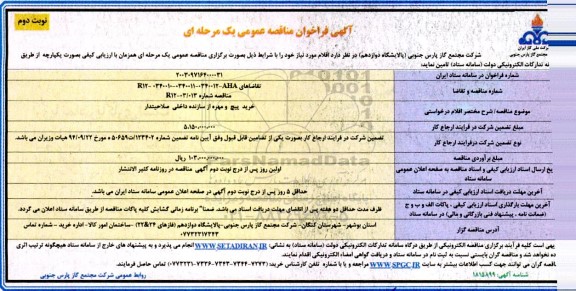 نوبت دوم
آگهی فراخوان مناقصه عمومی یک مرحله ای
شرکت ملی گاز ایران
شرکت مجتمع گاز پارس جنوبی
شرکت مجتمع گاز پارس جنوبی (پالایشگاه دوازدهم) در نظر دارد اقلام مورد نیاز خود را با شرایط ذیل بصورت برگزاری مناقصه عمومی یک مرحله ای همزمان با ارزیابی کیفی بصورت یکپارچه از طریق
تدارکات الکترونیکی دولت (سامانه ستاد) تامین نماید:
شماره فراخوان در سامانه ستاد ایران
شماره مناقصه و تقاضا
تقاضاهای
مناقصه شماره R12-03/013
موضوع مناقصه/ شرح مختصر اقلام درخواستی
خرید پیچ و مهره از سازنده داخلی صلاحیتدار
مبلغ تضمین شرکت در فرآیند ارجاع کار
5,150,000,000
نوع تضمین شرکت درفرآیند ارجاع کار
تضمین شرکت در فرآیند ارجاع کار بصورت یکی از تضامین قابل قبول وفق آیین نامه تضمین شماره 123402/ت50659 ه مورخ 94/09/22 هیات وزیران می باشد.
مبلغ برآوردی مناقصه
103,000,000,000 ریال
ارسال اسناد ارزیابی کیفی و اسناد مناقصه به صفحه اعلان عمومی
سامانه ستاد
اولین روز پس از درج نوبت دوم آگهی مناقصه در روزنامه کثیر الانتشار
آخرین مهلت دریافت اسناد ارزیابی کیفی در سامانه ستاد
حداقل 5 روز پس از درج نوبت دوم آگهی در صفحه اعلان عمومی سامانه ستاد ایران می باشد.
آخرین مهلت بارگذاری اسناد ارزیابی کیفی ، پاکات الف و ب و ج
(ضمانت نامه ، پیشنهاد فنی بازرگانی و مالی) در سامانه ستاد
ظرف مدت حداقل دو هفته پس از انقضای مهلت دریافت اسناد می باشد. ضمنا" برنامه زمانی گشایش کلیه پاکات مناقصه از طریق سامانه ستاد اعلان می گردد.
آدرس مناقصه گزار
استان بوشهر- شهرستان کنگان- شرکت مجتمع گاز پارس جنوبی-پالایشگاه دوازدهم (فازهای 22تا24)- ساختمان امور کالا- اداره خرید - شماره تماس
است کلیه فرآیند برگزاری مناقصه الکترونیکی از طریق درگاه سامانه تدارکات الکترونیکی دولت (سامانه ستاد) به نشانی: WWW.SETADIRAN.IR انجام می پذیرد و به پیشنهادهای خارج از سامانه ستاد هیچگونه ترتیب اثری
داده نخواهد شد و مناقصه گران بایستی نسبت به ثبت نام در سامانه ستاد و دریافت گواهی امضاء الکترونیکی اقدام نمایند.
مناقصه گران می توانند جهت کسب اطلاعات بیشتر به سایت WWW.SPGC.IR مراجعه و یا با شماره تلفن کارشناس خرید: تماس حاصل فرمایند.
شناسه آگهی: 1815899
روابط عمومی شرکت مجتمع گاز پارس جنوبی